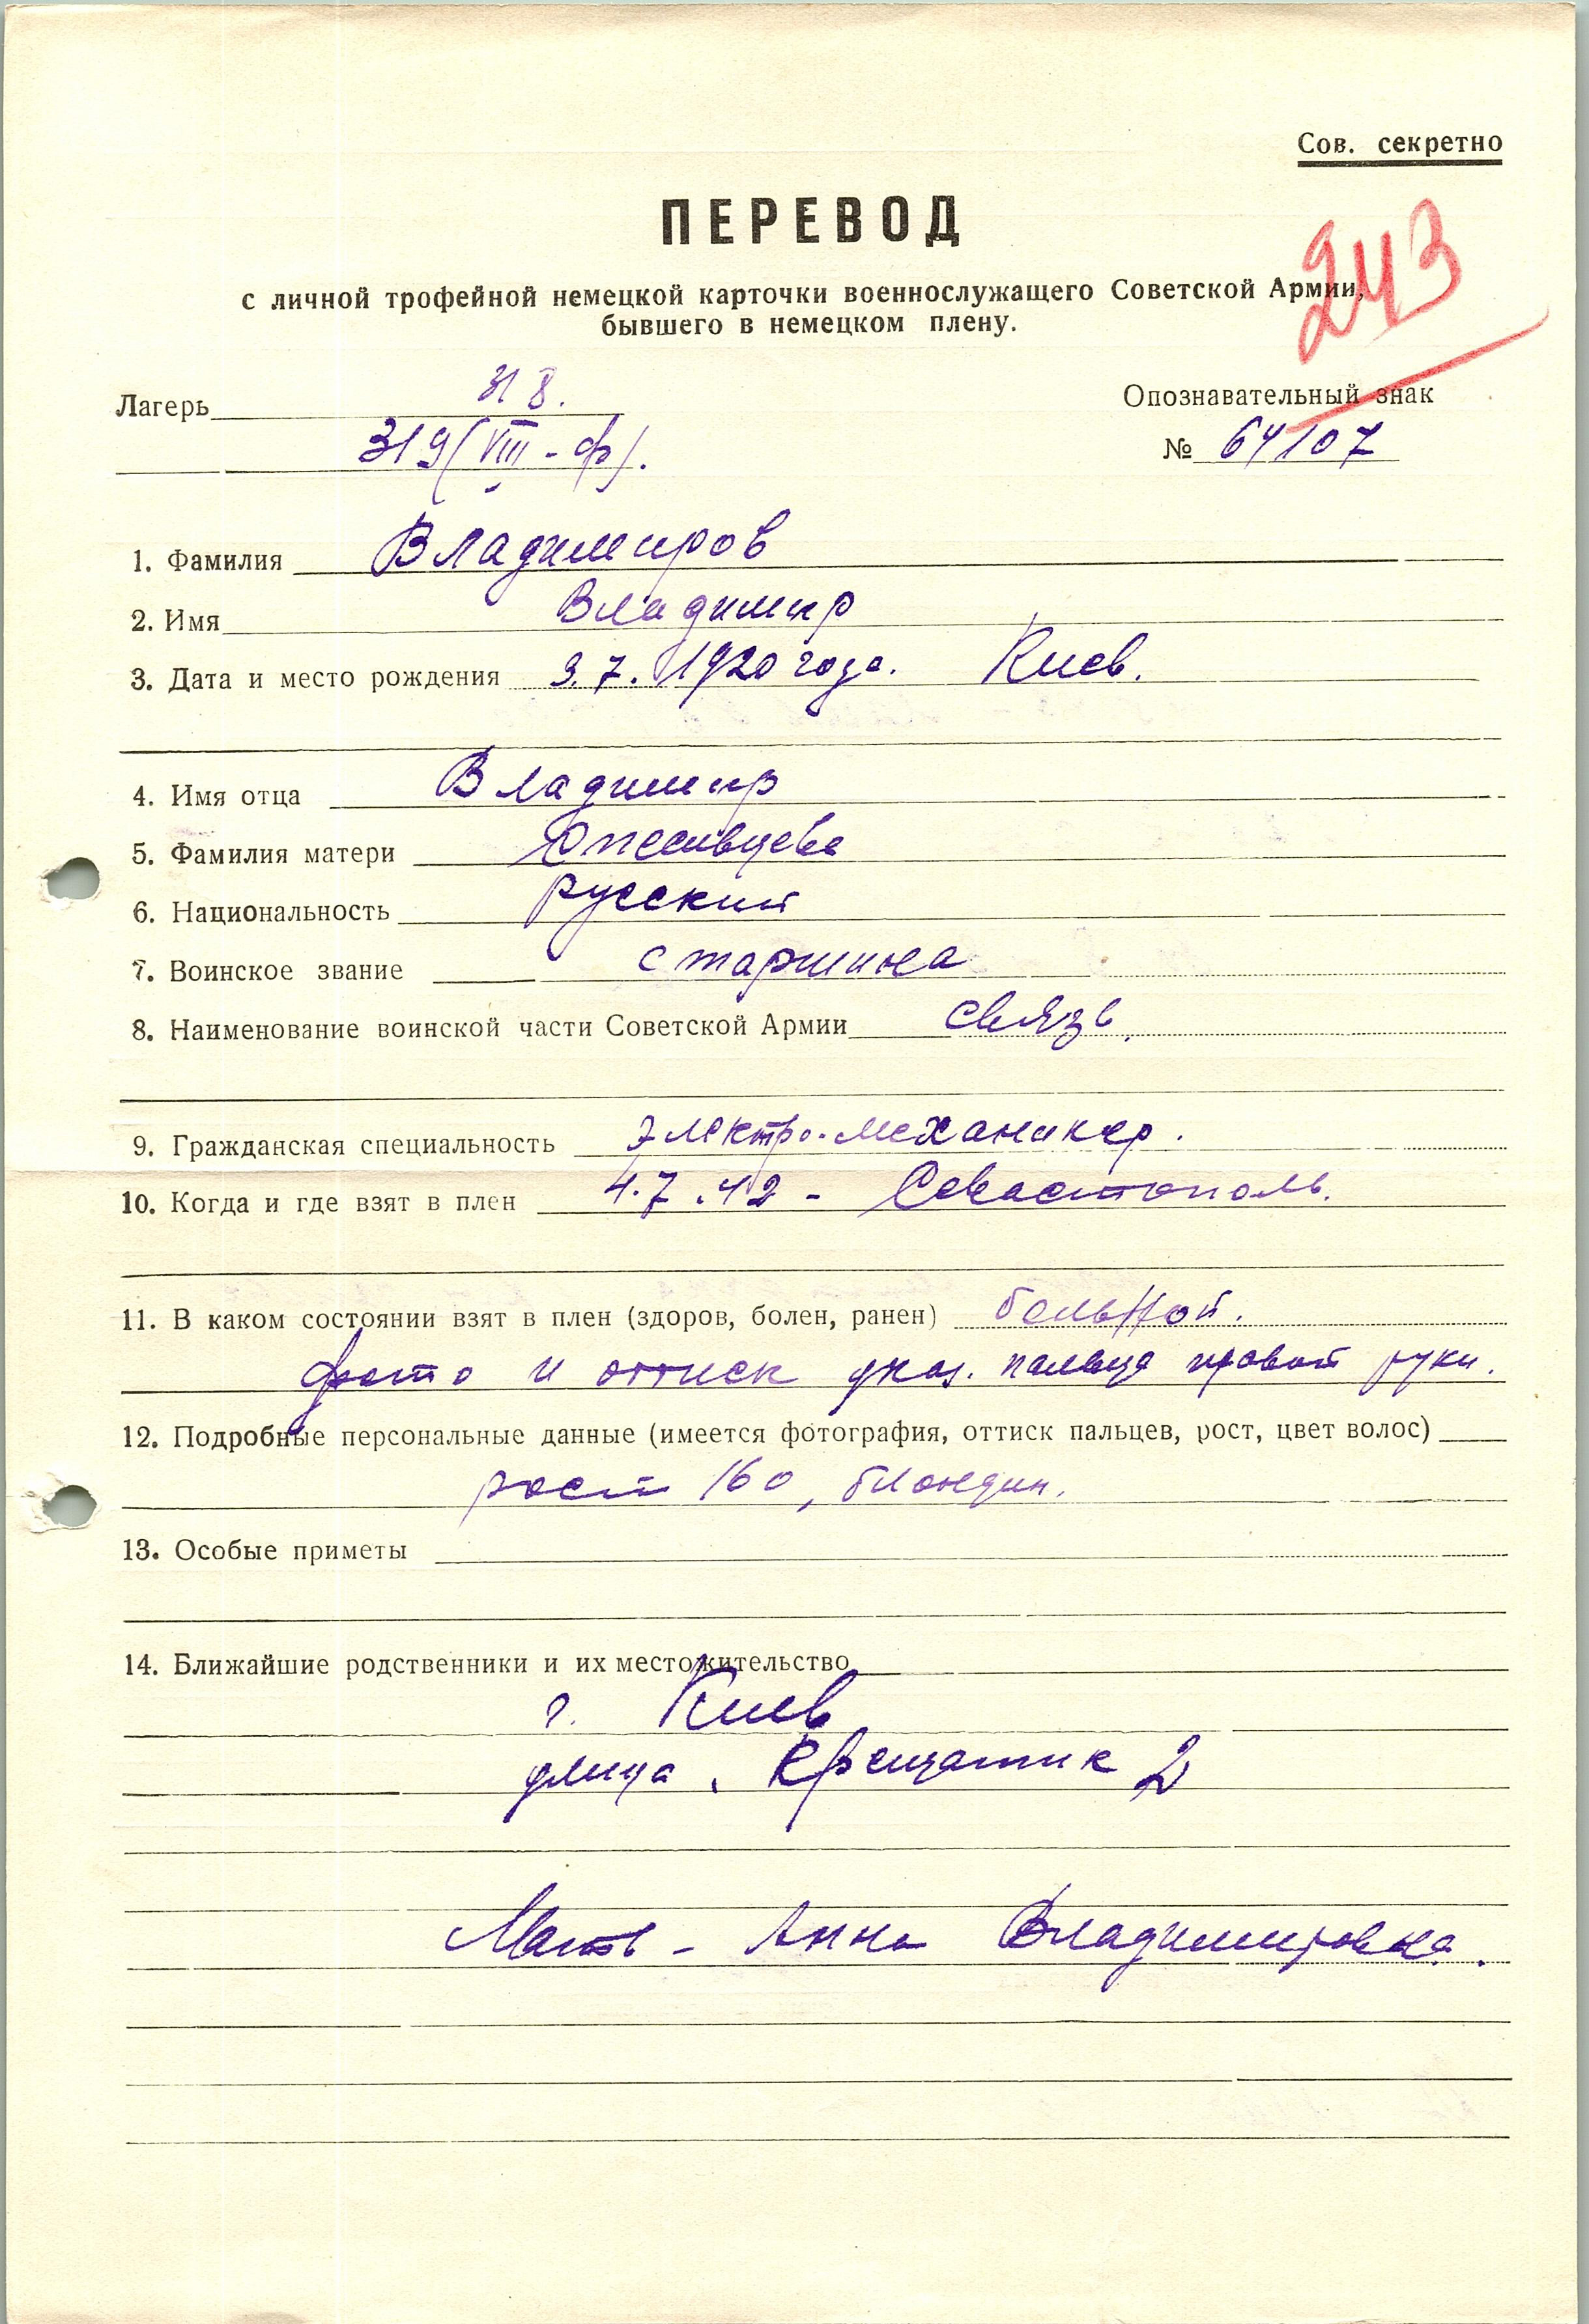 Сов. секретно
ПЕРЕВОД
243
с личной трофейной немецкой карточки военнослужащего Советской Армии,
бывшего в немецком плену.
Лагерь 318.
Опознавательный знак
319 (VIII-ф).
№ 64107
1. Фамилия Владимиров
2. Имя Владимир
3. Дата и место рождения 3.7.1920 года. Киев.
4. Имя отца Владимир
5. Фамилия матери
6. Национальность русский
7. Воинское звание старшина
8. Наименование воинской части Советской Армии связь
9. Гражданская специальность электро-механикер.
10. Когда и где взят в плен 4.7.42 - Севастополь.
11. В каком состоянии взят в плен (здоров, болен, ранен) больной.
фото и оттиск указ. пальца правой руки.
12. Подробные персональные данные (имеется фотография, оттиск пальцев, рост, цвет волос)
рост 160, блондин.
13. Особые приметы
14. Ближайшие родственники и их местожительство
г. Киев
улица, Крещатик 2
Мать - Анна Владимировна.